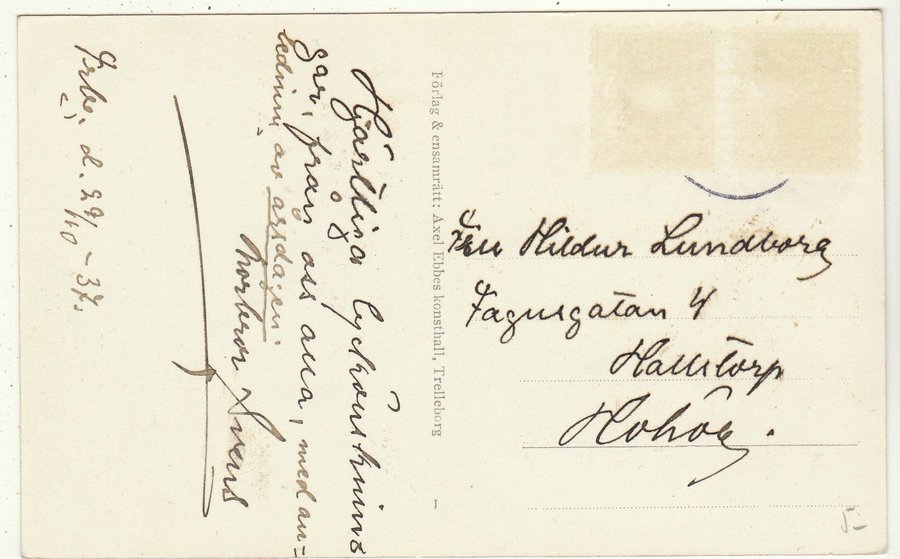 Trbg. d. 29/10 - 37.
Hjärtliga lyckönsknin-
gar, från oss alla, med an-
ledning av årsdagen
Förlag & ensamrätt: Axel Ebbes konsthall, Trelleborg
Fru Hildur Lundborg
Fagusgatan 4
Hallstorp